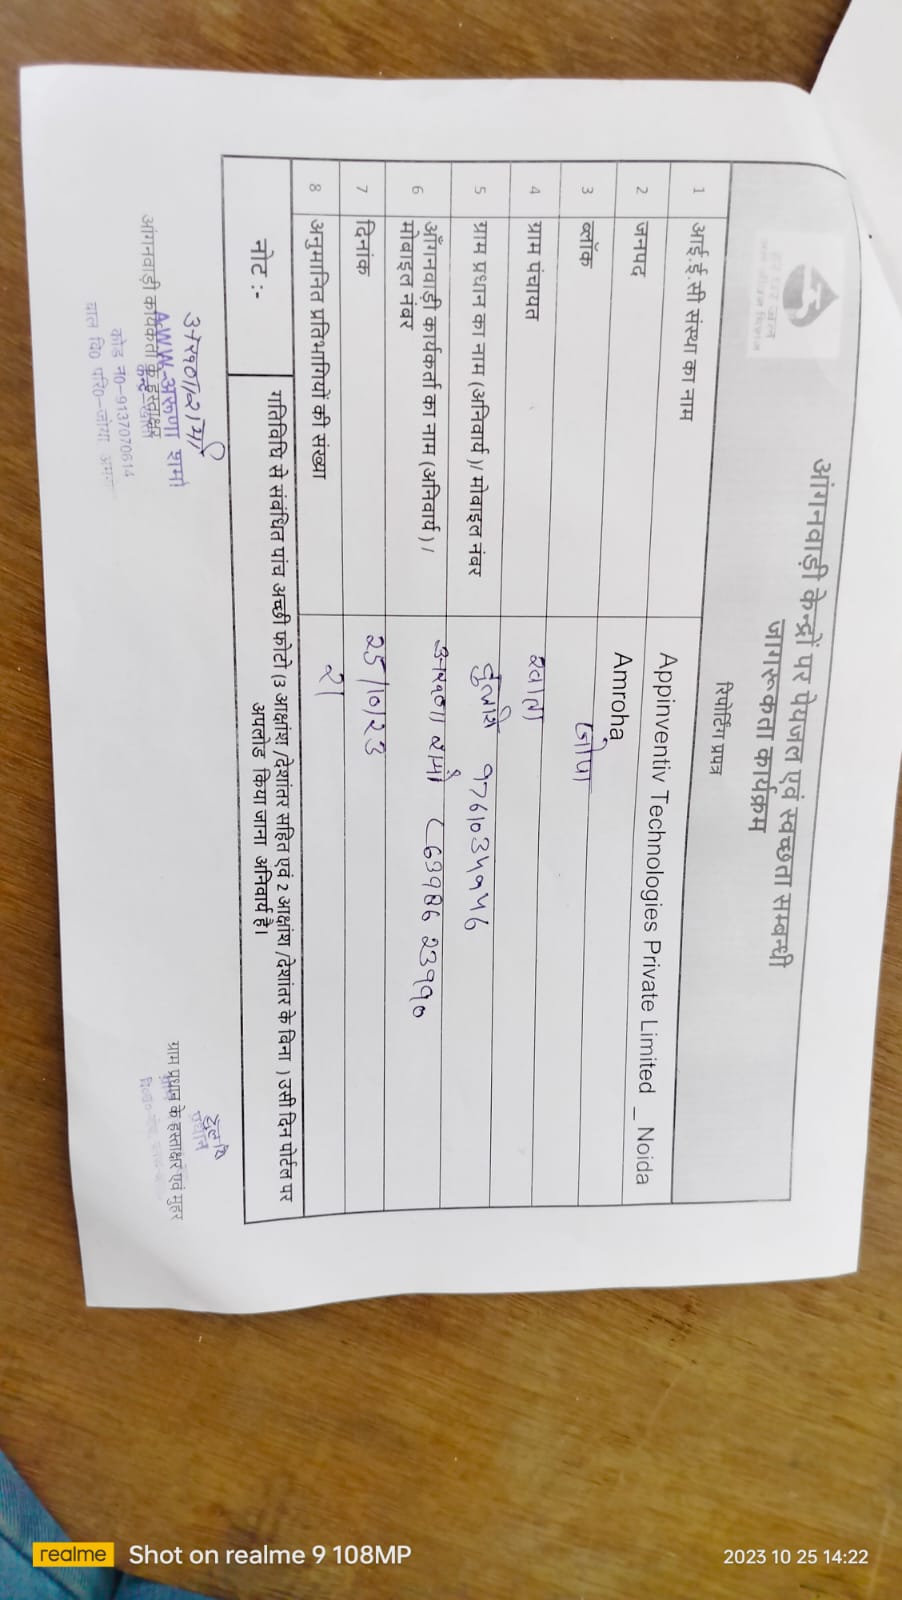 हर घर जल
जल जीवन मिशन
आंगनवाड़ी केन्द्रों पर पेयजल एवं स्वच्छता सम्बन्धी
जागरूकता कार्यक्रम
रिपोर्टिंग प्रपत्र
1 आई.ई.सी संस्था का नाम Appinventiv Technologies Private Limited _ Noida
2 जनपद Amroha
3 ब्लॉक जोया
4 ग्राम पंचायत
5 ग्राम प्रधान का नाम (अनिवार्य )/ मोबाइल नंबर 9761034946
6 आँगनवाड़ी कार्यकर्ता का नाम (अनिवार्य ) /
मोबाइल नंबर अरुणा शर्मा
7 दिनांक 25/10/23
8 अनुमानित प्रतिभागियों की संख्या 21
नोट :- गतिविधि से संबंधित पांच अच्छी फोटो (3 आक्षांश /देशांतर सहित एवं 2 आक्षांश /देशांतर के बिना ) उसी दिन पोर्टल पर
अपलोड किया जाना अनिवार्य है।
अरुणा शर्मा
AWW. अरुणा शर्मा
आंगनवाड़ी कार्यकर्ता के हस्ताक्षर
कोड न0-9137070614
बाल वि0 परि0-जोया
प्रधान
ग्राम प्रधान के हस्ताक्षर एवं मुहर
realme Shot on realme 9 108MP
2023 10 25 14:22